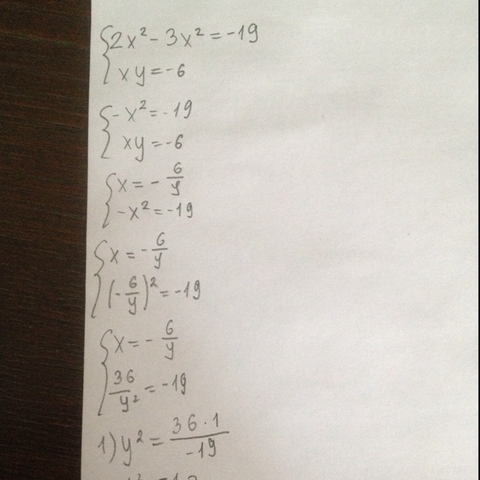 2x² - 3x² = -19
xy = -6
-x² = -19
xy = -6
x = - 6/y
-x² = -19
x = - 6/y
(- 6/y)² = -19
x = - 6/y
36/y² = -19
1) y² = 36 · 1/-19